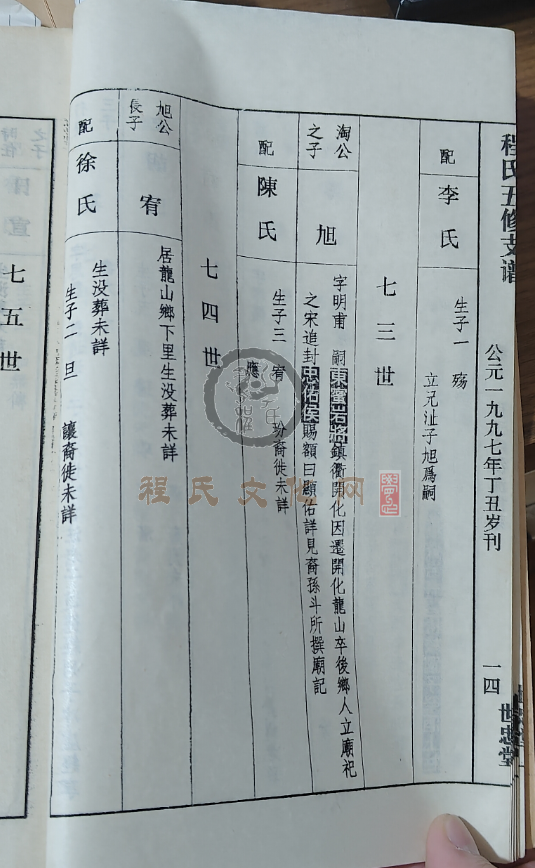 程氏五修支谱
公元一九九七年丁丑岁刊
一四
世忠堂
配
李氏
生子一 殇
立兄沚子旭爲嗣
七三世
淘公
之子
旭
字明甫 嗣東蜜岩將鎮衢開化因遷開化龍山卒後鄉人立廟祀
之宋追封忠佑侯賜額曰顯佑詳見裔孫斗所撰廟記
配
陳氏
生子三 宥
應
玢裔徙未詳
七四世
旭公
長子
宥
居龍山鄉下里生没葬未詳
配
徐氏
生没葬未詳
生子二 旦
讓裔徙未詳
七五世
之子
宣
程氏文化网